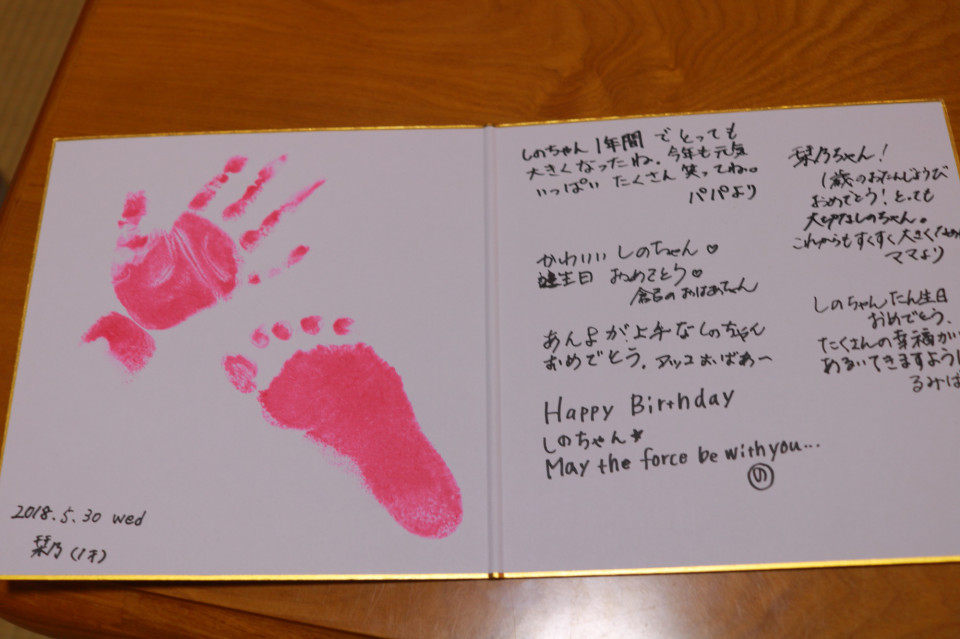 2018.5.30 wed
栞乃(1才)
しのちゃん 1年間 でとっても
大きくなったね。今年も元気
いっぱい たくさん 笑ってね。
パパより
かわいい しのちゃん♡
誕生日 おめでとう♡
倉石のおばあちゃん
あんよが上手なしのちゃん
おめでとう。アッコおばあ〜
Happy Birthday
しのちゃん★
May the force be with you...
の
栞乃ちゃん!
1歳のおたんじょうび
おめでとう!とっても
大切なしのちゃん。
これからもすくすく大きく
ママより
しのちゃんたん生日
おめでとう、
たくさんの幸福が
あるいてきますように
るみば